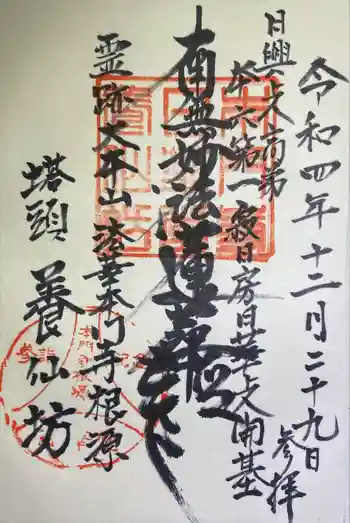 令和四年十二月二十九日
参拝
日興上人高弟
本六第一寂日房日華上人開基
南無妙法蓮華経
霊跡大本山法華本門寺根源
塔頭養仙坊